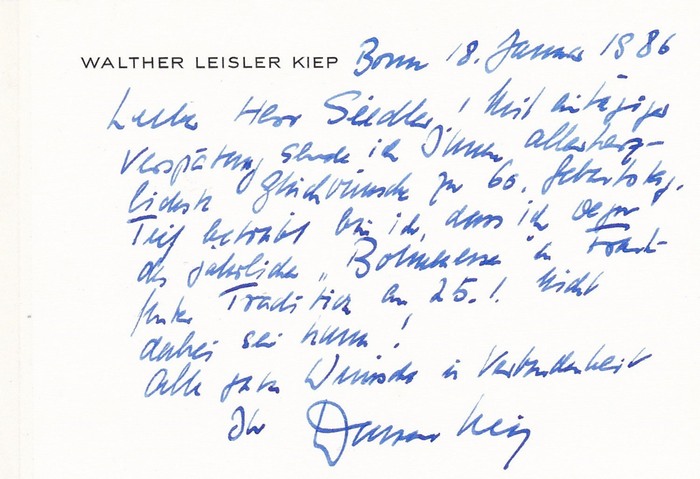 WALTHER LEISLER KIEP Bonn 18. Januar 1986
Lieber Herr Siedler! Mit eintägiger
Verspätung sende ich Ihnen allerherz-
lichste Glückwünsche zum 60. Geburtstag.
Tief betrübt bin ich, dass ich wegen
des jährlichen in Frank-
furter Tradition am 25.1. nicht
dabei sein kann!
Alle guten Wünsche in Verbundenheit
Ihr Kiep